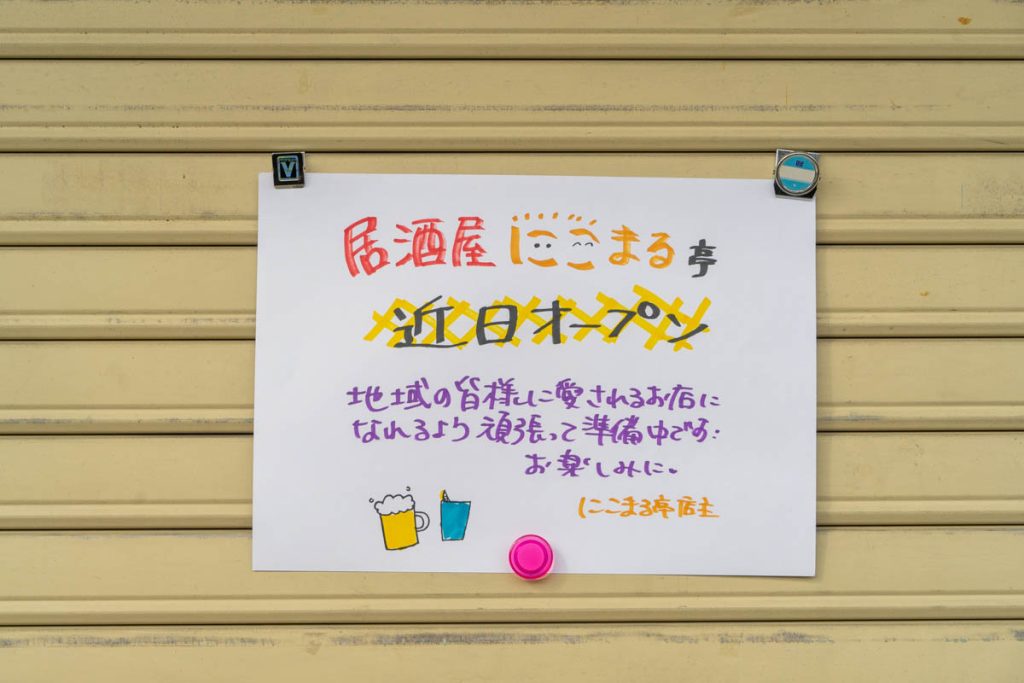 居酒屋 にこまる亭
近日オープン
地域の皆様に愛されるお店に
なれるよう頑張って準備中です!
お楽しみに。
にこまる亭店主
V